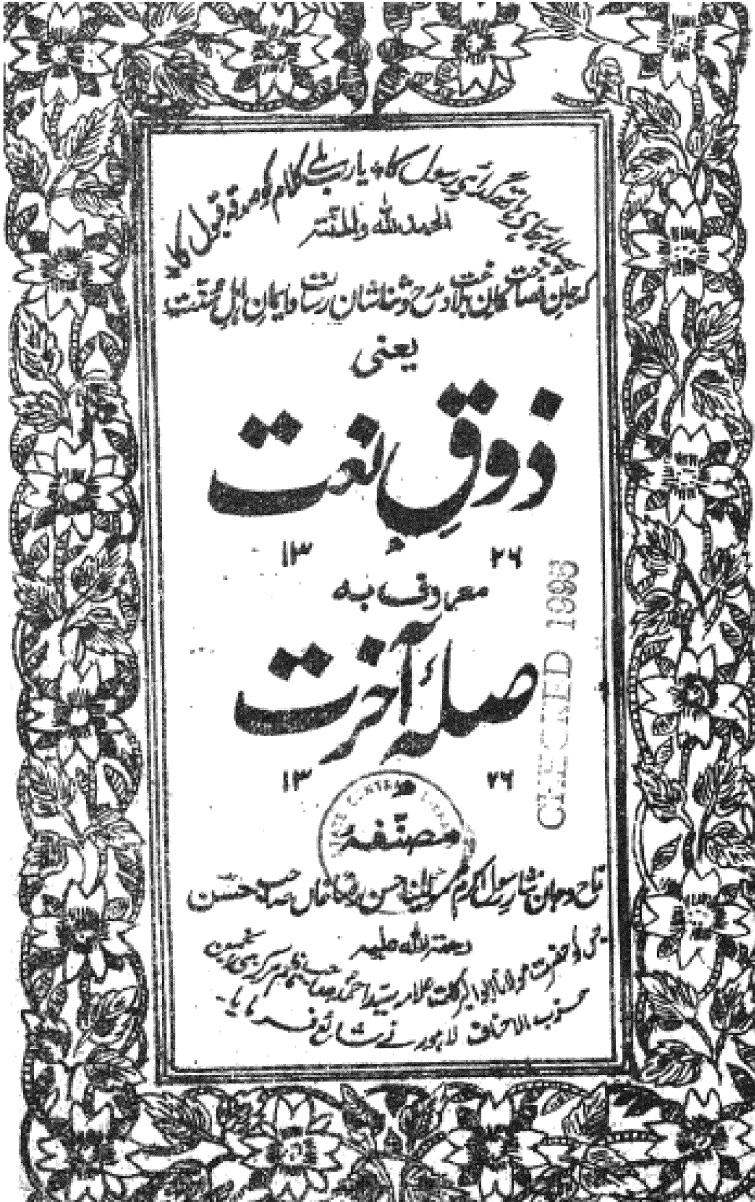 رسول کا * یا رب ملے کلام کو صدقہ قبول کا *
الحمد للہ والمنتہ
کہ جانِ فصاحت کانِ بلاغت مدح و ثنا شانِ رسالت و ایمانِ اہلِ محبت
یعنی
ذوقِ نعت
۱۳ ۲۶
معروف بہ
صلۂ آخرت
۱۳ ۲۶
CHECKED 1996
مصنّفہ
مداح و جاں نثارِ رسول اکرم مولینا حسن رضا خاں صاحب حسن
رحمتہ اللہ علیہ
حضرت مولانا ابوالبرکات علامہ سید احمد صاحب ناظم مرکزی انجمن
حزب الاحناف لاہور نے شائع فرمایا۔